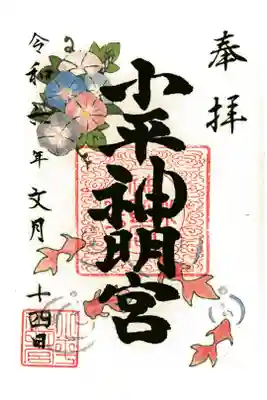 奉拝
小平神明宮
令和二年文月十四日